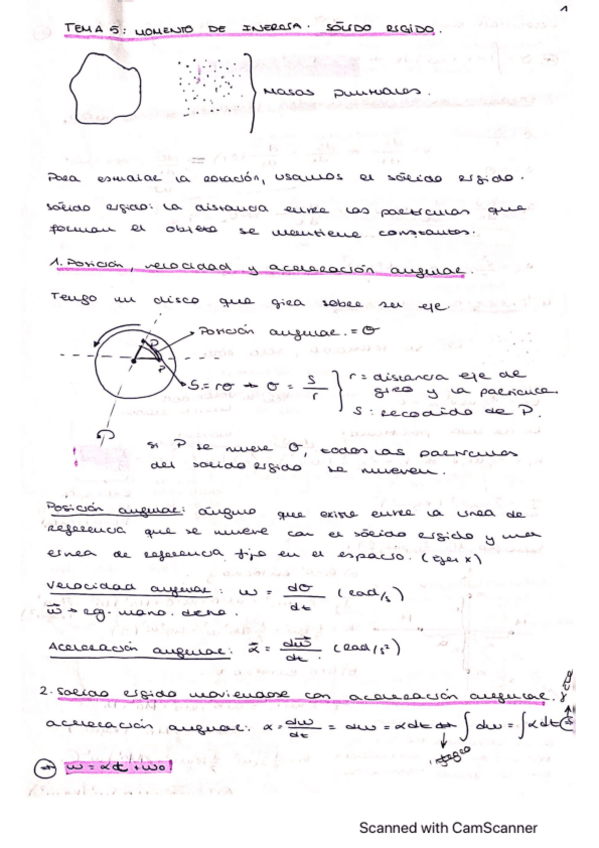 1
TEMA 5: MOMENTO DE INERCIA. SÓLIDO RÍGIDO.
Masas puntuales.
Para estudiar la rotación, usamos el sólido rígido.
Sólido rígido: la distancia entre las partículas que
forman el objeto se mantiene constantes.
1. Posición, velocidad y aceleración angular.
Tengo un disco que gira sobre su eje.
Posición angular. = θ
P
P
S = rθ → θ = s/r
r = distancia eje de
giro y la partícula.
s: recodido de P.
si P se mueve θ, todas las partículas
del sólido rígido se mueven.
Posición angular: ángulo que existe entre la línea de
referencia que se mueve con el sólido rígido y una
línea de referencia fijo en el espacio. (Eje x)
Velocidad angular: w = dθ/dt (rad/s)
w⃗ → rg. mano. dcha.
Aceleración angular: α⃗ = dw⃗/dt. (rad/s²)
2. Sólido rígido moviéndose con aceleración angular. cte
aceleración angular: α = dw/dt = dw = αdt → ∫dw = ∫αdt
integro
→ w = αt + w₀
Scanned with CamScanner